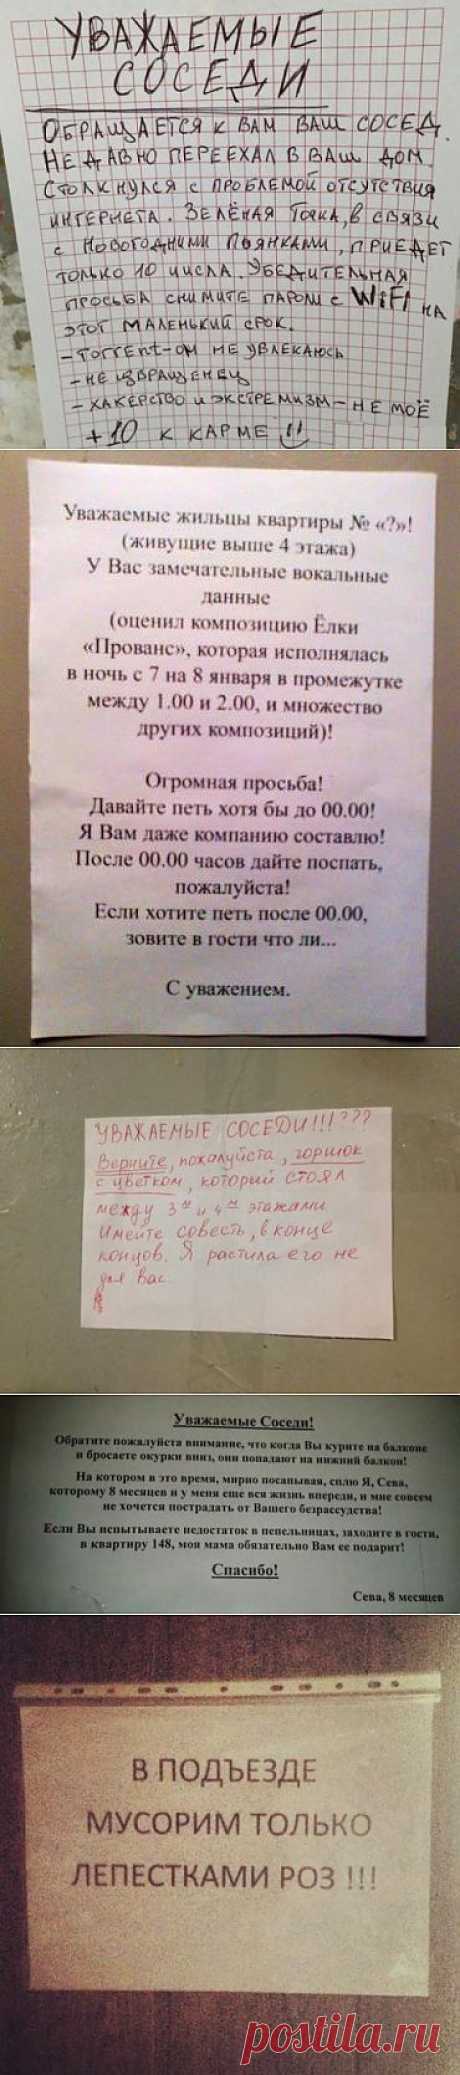 УВАЖАЕМЫЕ
СОСЕДИ
ОБРАЩАЕТСЯ К ВАМ ВАШ СОСЕД.
НЕДАВНО ПЕРЕЕХАЛ В ВАШ ДОМ.
СТОЛКНУЛСЯ С ПРОБЛЕМОЙ ОТСУТСТВИЯ
ИНТЕРНЕТА. ЗЕЛЁНАЯ ТОЧКА, В СВЯЗИ
С НОВОГОДНИМИ ПЬЯНКАМИ, ПРИЕДЕТ
ТОЛЬКО 10 ЧИСЛА. УБЕДИТЕЛЬНАЯ
ПРОСЬБА СНИМИТЕ ПАРОЛИ С WiFi НА
ЭТОТ МАЛЕНЬКИЙ СРОК.
- TORRENT-ОМ НЕ УВЛЕКАЮСЬ
- НЕ ИЗВРАЩЕНЕЦ
- ХАКЕРСТВО И ЭКСТРЕМИЗМ - НЕ МОЁ
+10 К КАРМЕ !!
Уважаемые жильцы квартиры № «?»!
(живущие выше 4 этажа)
У Вас замечательные вокальные
данные
(оценил композицию Ёлки
«Прованс», которая исполнялась
в ночь с 7 на 8 января в промежутке
между 1.00 и 2.00, и множество
других композиций)!
Огромная просьба!
Давайте петь хотя бы до 00.00!
Я Вам даже компанию составлю!
После 00.00 часов дайте поспать,
пожалуйста!
Если хотите петь после 00.00,
зовите в гости что ли...
С уважением.
УВАЖАЕМЫЕ СОСЕДИ!!!???
Верните, пожалуйста, горшок
с цветком, который стоял
между 3м и 4м этажами
Имейте совесть, в конце
концов. Я растила его не
для Вас
Уважаемые Соседи!
Обратите пожалуйста внимание, что когда Вы курите на балконе
и бросаете окурки вниз, они попадают на нижний балкон!
На котором в это время, мирно посапывая, сплю Я, Сева,
которому 8 месяцев и у меня еще вся жизнь впереди, и мне совсем
не хочется пострадать от Вашего безрассудства!
Если Вы испытываете недостаток в пепельницах, заходите в гости,
в квартиру 148, моя мама обязательно Вам ее подарит!
Спасибо!
Сева, 8 месяцев
В ПОДЪЕЗДЕ
МУСОРИМ ТОЛЬКО
ЛЕПЕСТКАМИ РОЗ !!!
postila.ru